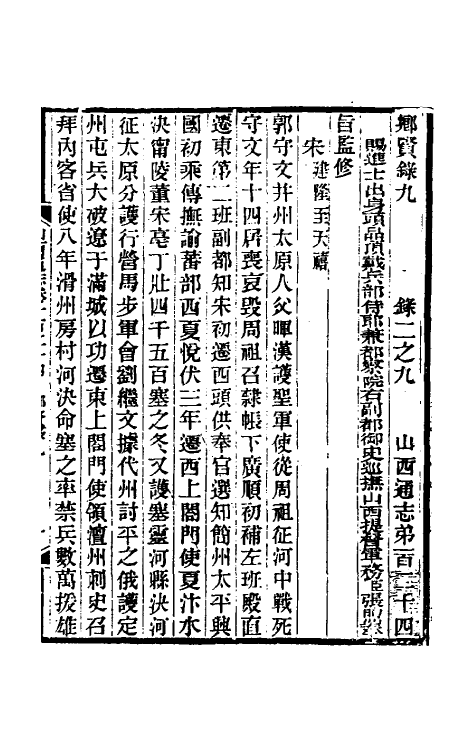 鄉賢錄九　錄二之九　山西通志弟一百三十四
賜進士出身頭品頂戴兵部侍郎兼都察院右副都御史巡撫山西提督軍務臣張
旨監修
宋 建隆至天禧
郭守文并州太原人父暉漢護聖軍使從周祖征河中戰死
守文年十四居喪哀毀周祖召隸帳下廣順初補左班殿直
遷東第二班副都知宋初遷西頭供奉官選知簡州太平興
國初乘傳撫諭蕃部西夏悅伏三年遷西上閤門使夏汴水
決甯陵董宋亳丁壯四千五百塞之冬又護塞靈河縣決河
征太原分護行營馬步軍會劉繼文據代州討平之俄護定
州屯兵大破遼于滿城以功遷東上閤門使領澶州刺史召
拜內客省使八年滑州房村河決命塞之率禁兵數萬援雄